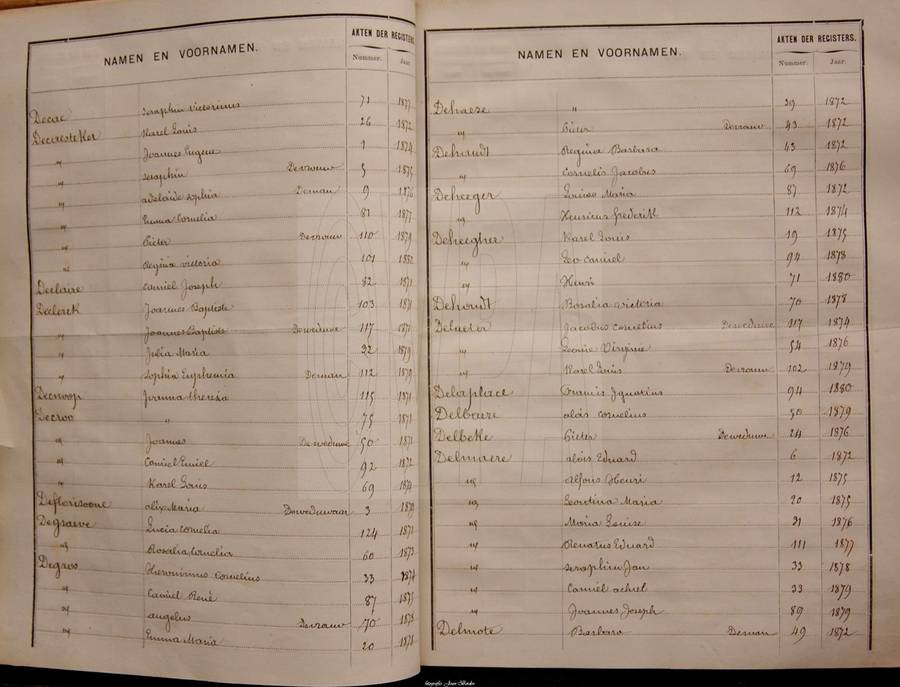 NAMEN EN VOORNAMEN. AKTEN DER REGISTERS.
Nummer. Jaar.
Decae Seraphin Victorinus 71 1877
Decaesteker Karel Louis 26 1872
" Joannes Eugene 1 1874
" Seraphin Devrouw 5 1875
" adelaide Sophia Deman 9 1876
" Emma Cornelia 81 1877
" Pieter Devrouw 110 1879
" Regina victoria 101 1880
Declaire Camiel Joseph 82 1871
Declerck Joannes Baptiste 103 1871
" Joannes Baptiste Deweduwe 117 1871
" Julia Maria 32 1879
" Sophia Euphemia Deman 112 1879
Decnoop Joanna theresa 115 1871
Decroo " 75 1871
" Joannes Deweduwe 50 1871
" Camiel Emiel 92 1872
" Karel Louis 69 1874
Deflorisoone alix Maria Deweduwaar 3 1879
Degraeve Lucia Cornelia 124 1871
" Rosalia Cornelia 60 1873
Degros Hieronimus Cornelius 33 1874
" Camiel René 87 1875
" angelus Devrouw 70 1878
" Emma Maria 20 1878
NAMEN EN VOORNAMEN. AKTEN DER REGISTERS.
Nummer. Jaar.
Dehaeze " 39 1872
" Pieter Devrouw 43 1872
Dehandt Regina Barbara 43 1872
" Cornelis Jacobus 69 1876
Deheeger Louise Maria 87 1872
" Henricus frederik 112 1874
Deheegher Karel Louis 19 1875
" Leo Camiel 94 1878
" Henri 71 1880
Dehondt Rosalia Victoria 70 1878
Delaeter Jacobus Cornelius Deweduwe 117 1874
" Leonie Virginie 54 1876
" Karel Louis Devrouw 102 1879
Delaplace Francis Ignatius 94 1880
Delbaere alois Cornelius 50 1879
Delbeke Pieter Deweduwe 24 1876
Delmaere alois Eduard 6 1872
" Alfons Henri 12 1875
" Leontina Maria 20 1875
" Maria Louise 31 1876
" Renatus Eduard 111 1877
" Seraphin Jan 33 1878
" Camiel achiel 33 1879
" Joannes Joseph 89 1879
Delmote Barbara Deman 49 1872